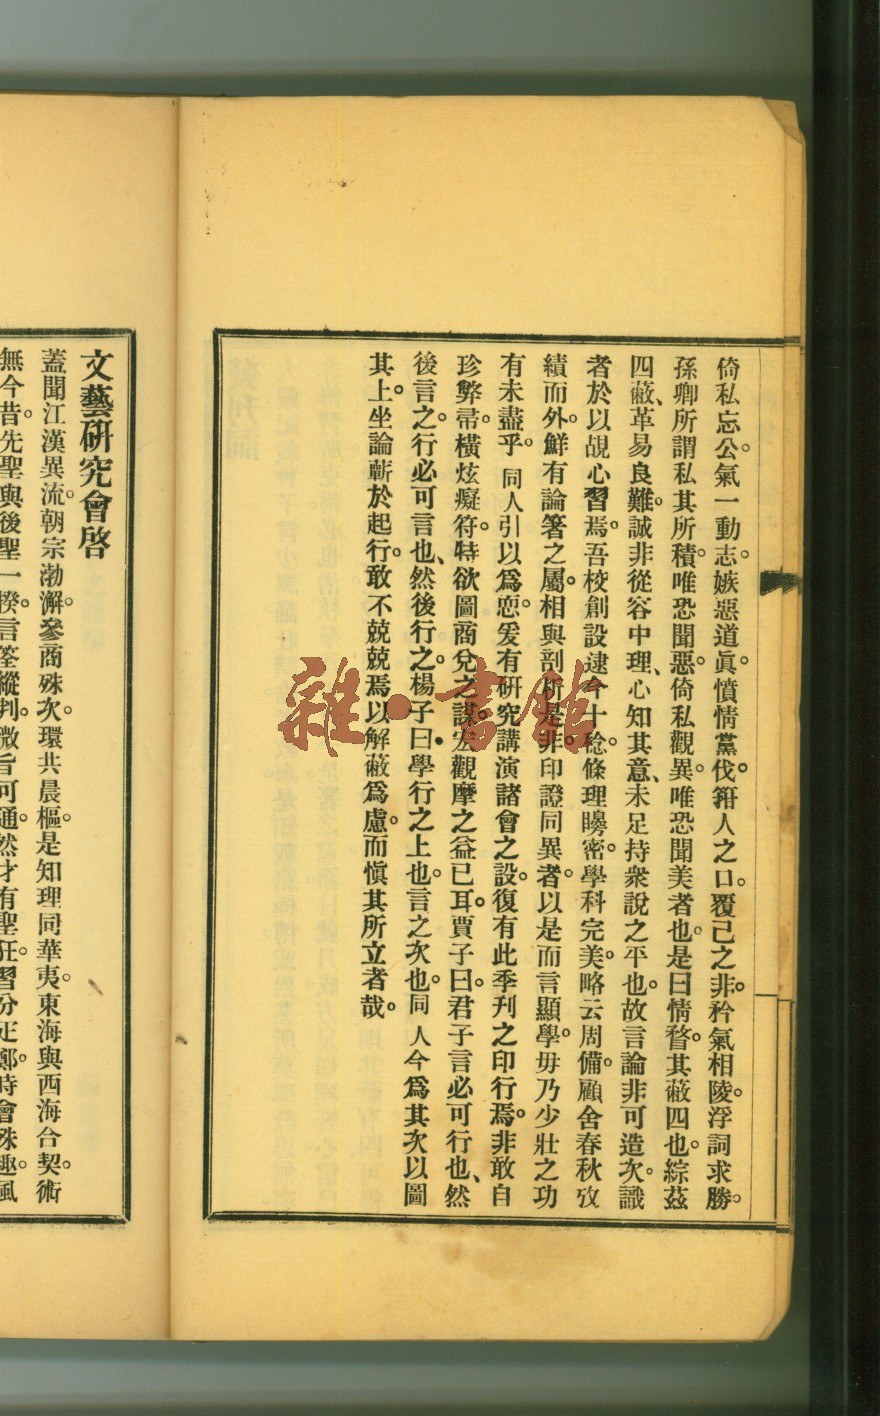 倚私忘公。氣一動志。嫉惡道眞。憤情黨伐。箝人之口。覆己之非。矜氣相陵。浮詞求勝。
孫卿所謂私其所積。唯恐聞惡。倚私觀異。唯恐聞美者也。是曰情瞀。其蔽四也。綜茲
四蔽、革易良難。誠非從容中理、心知其意、未足持衆說之平也。故言論非可造次。識
者於以覘心習焉。吾校創設。逮今十稔。條理臻密。學科完美。略云周備。顧舍春秋攷
績而外。鮮有論箸之屬。相與剖析是非。印證同異者。以是而言顯學。毋乃少壯之功
有未盡乎。同人引以爲恧。爰有硏究講演諸會之設。復有此季刊之印行焉。非敢自
珍弊帚。橫炫癡符。特欲圖商兌之謀。宏觀摩之益已耳。賈子曰。君子言必可行也、然
後言之。行必可言也、然後行之。楊子曰。學行之上也。言之次也。同人今爲其次以圖
其上。坐論蘄於起行。敢不兢兢焉以解蔽爲慮。而愼其所立者哉。
文藝硏究會啓
蓋聞江漢異流。朝宗渤澥。參商殊次。環共晨樞。是知理同華夷。東海與西海合契。術
無今昔。先聖與後聖一揆。言筌縱判。微旨可通。然才有聖狂。習分疋鄭。時會殊趣。風